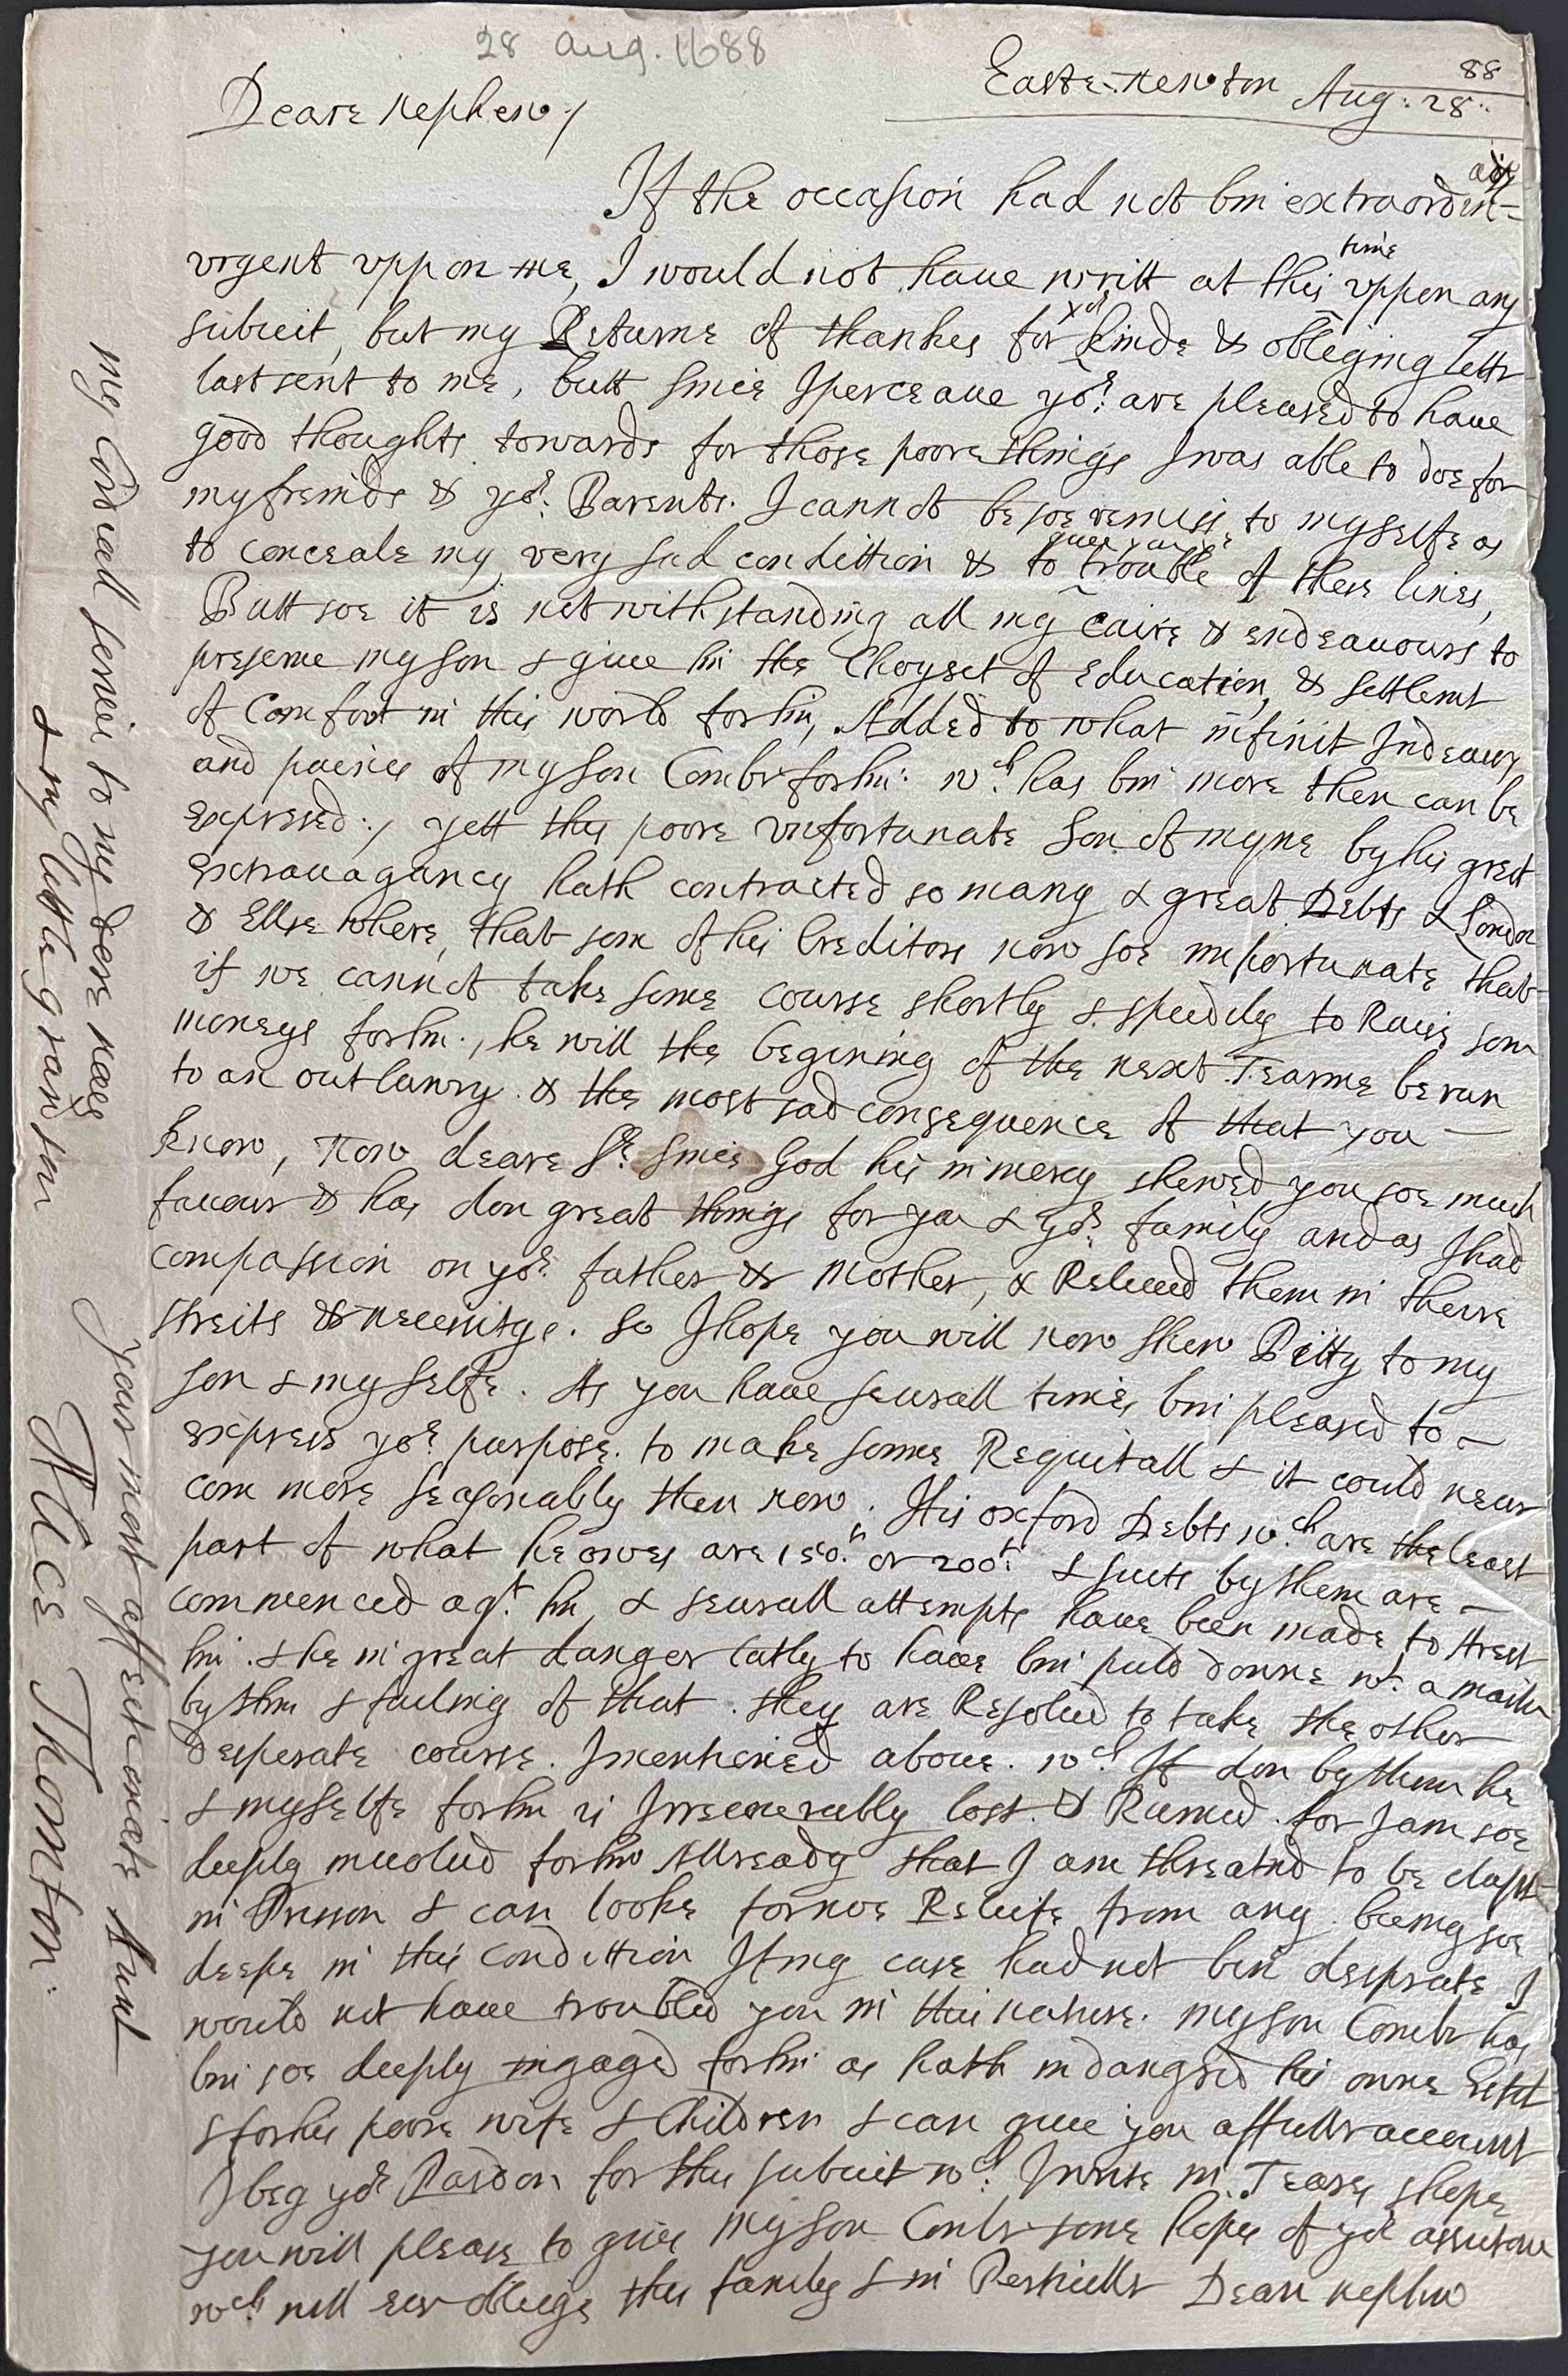 28 Aug. 1688
88
East-Newton Aug: 28:
Deare Nephew /
If the occasion had not bin extraordin=
ary
urgent vppon me, I would not haue writt at this time vppon any
subieit, but my Returne of thankes for yor kinde & obleging letter
last sent to me, butt since I perceaue yor. are pleased to haue
good thoughts towards for those poore things I was able to doe for
my freinds & yor. Parents. I cannot be soe remiss to my selfe as
to conceale my very sad condittion & to giue you the trouble of these lines,
Butt soe it is not withstanding all my Caire & endeauours to
preserue my son & giue him the Choysest of Education, & settlemt
of Comfort in this world for him, Added to what infinit Indeauors
and paines of my son Comber for him: wch. has bin more then can be
expressed:, yett this poore vnfortunate Son of myne by his great
extrauagancy hath contracted so many & great Debts & London
& Elsewhere, that som of his Creditors now soe importunate that
if we cannot take some course shortly & speedily to Raise som
moneys for him., he will the begining of the next Tearme be run
to an outlawry. & the most sad consequence of that you —
know, Now deare Sr. since God his in mercy shewed you soe much
fauour & has don great things for you & yor. family and as I had
compassion on yor. father & Mother, & Releued them in theire
streits & necessitye. So I hope you will now shew Pitty to my
son & my selfe. As you haue seuerall times bin pleased to —
express yor. purpose. to make some Requitall & it could neuer
com more seasonably then now. His oxford Debts wch. are the least
part of what he owes are 150.li or 200li & suits by them are —
commenced agt. him, & seuerall attempts haue been made to Arest
him. & he in great danger latly to haue bin puld downe wt. a
by them & failing of that. they are Resolued to take the other
desperate course. I mentioned aboue. wch. If don by them he
& my selfe for him is Irrecouerably lost. & Ruined. for I am soe
deeply inuolued for him Allready that I am threatnd to be clapt
in Prison & can looke for noe Releife from any. beeing soe
deepe in this Condittion If my case had not bin desperate I
would not haue troubled you in this nature. My son Comber has
bin soe deeply ingaged for him as hath indangred his owne Estat
& for his poore wife & Children & can giue you a fuller account
I beg yor Pardon for this subieit wch. I write in Teares & hope
you will please to giue My son Comber some hopes of yor assistance
wch. will euer obleige this family & in Perticuler Deare nephew
Your most affectionate Aunt
Alice Thornton.
My Cordiall seruice to my deare neece
& my little grandson